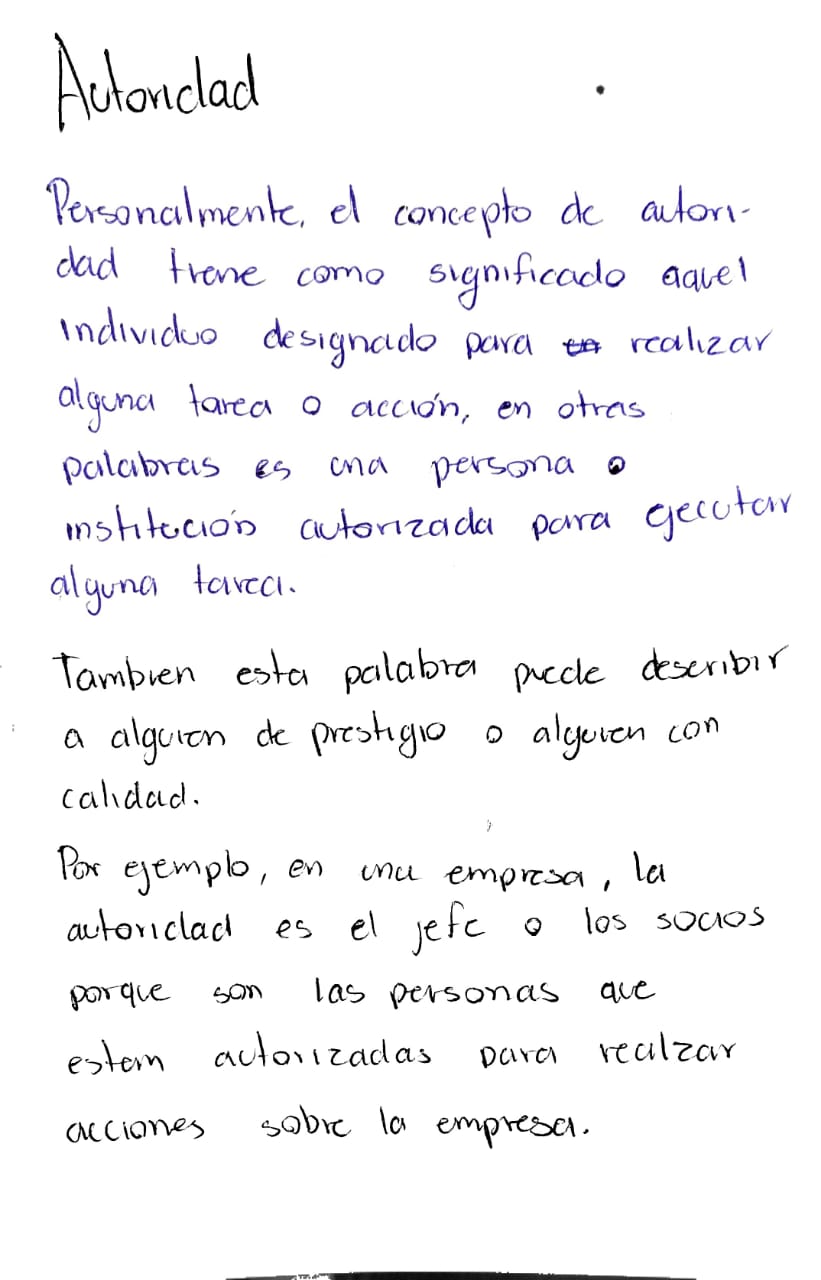 Autoridad
Personalmente, el concepto de autori-
dad tiene como significado aquel
individuo designado para realizar
alguna tarea o acción, en otras
palabras es una persona o
institución autorizada para ejecutar
alguna tarea.
Tambien esta palabra puede describir
a alguien de prestigio o alguien con
calidad.
Por ejemplo, en una empresa, la
autoridad es el jefe o los socios
porque son las personas que
estan autorizadas para realzar
acciones sobre la empresa.